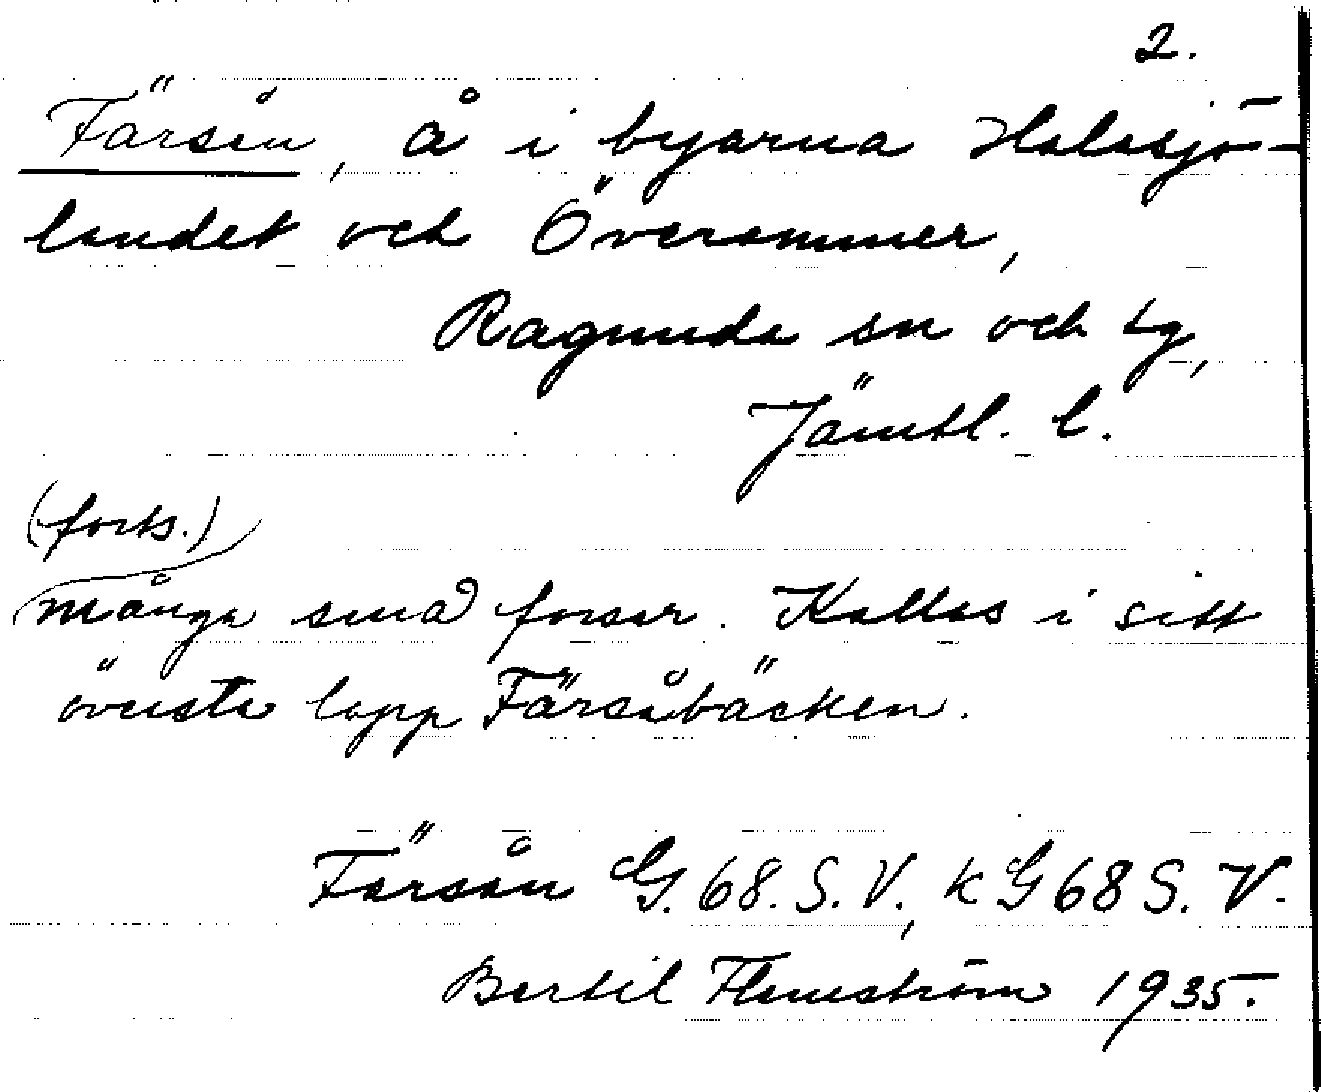 2.
Färsån, å i byarna Halasjö-
landet och Överammer,
Ragunda sn och tg,
Jämtl. l.
(forts.)
många små forsar. Kallas i sitt
översta lopp Färsåbäcken.
Färsån G. 68. S. V., k G 68 S. V.
Bertil Flemström 1935.